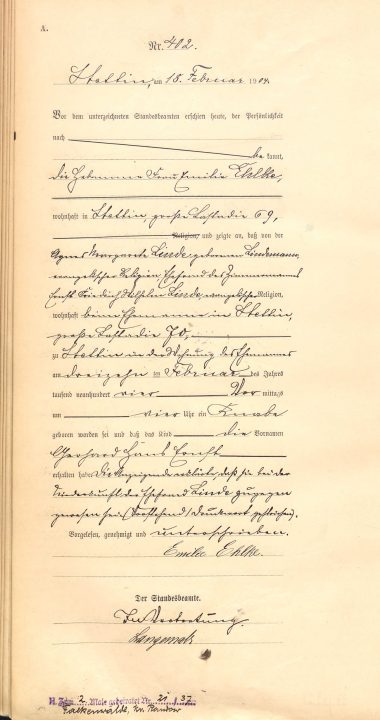 A.
Nr. 402.
Stettin, am 18. Februar 1904.
Vor dem unterzeichneten Standesbeamten erschien heute, der Persönlichkeit
nach
be kannt,
die Hebamme Frau Emilie Ehlke,
wohnhaft in Stettin, große Lastadie 69,
Religion, und zeigte an, daß von der
Agnes Margarete Linde geborenen Lindemann,
evangelischer Religion, Ehefrau des Zimmermanns
Ernst Friedrich Wilhelm Linde, evangelischer Religion,
wohnhaft beim Ehemanne in Stettin,
große Lastadie 70,
zu Stettin in der Wohnung des Ehemannes
am dreizehn ten Februar des Jahres
tausend neunhundert vier Vor mittags
um vier Uhr ein Knabe
geboren worden sei und daß das Kind die Vornamen
Gerhard Hans Ernst
erhalten habe. Die Anzeigende erklärte, daß sie bei der
Niederkunft der Ehefrau Linde zugegen
gewesen sei. (Vorstehend / Druckwort gestrichen).
Vorgelesen, genehmigt und unterschrieben.
Emilie Ehlke.
Der Standesbeamte.
In Vertretung.
H. 2 Male geheiratet Nr. 21 / 37
Falkenwalde, Kr. Randow